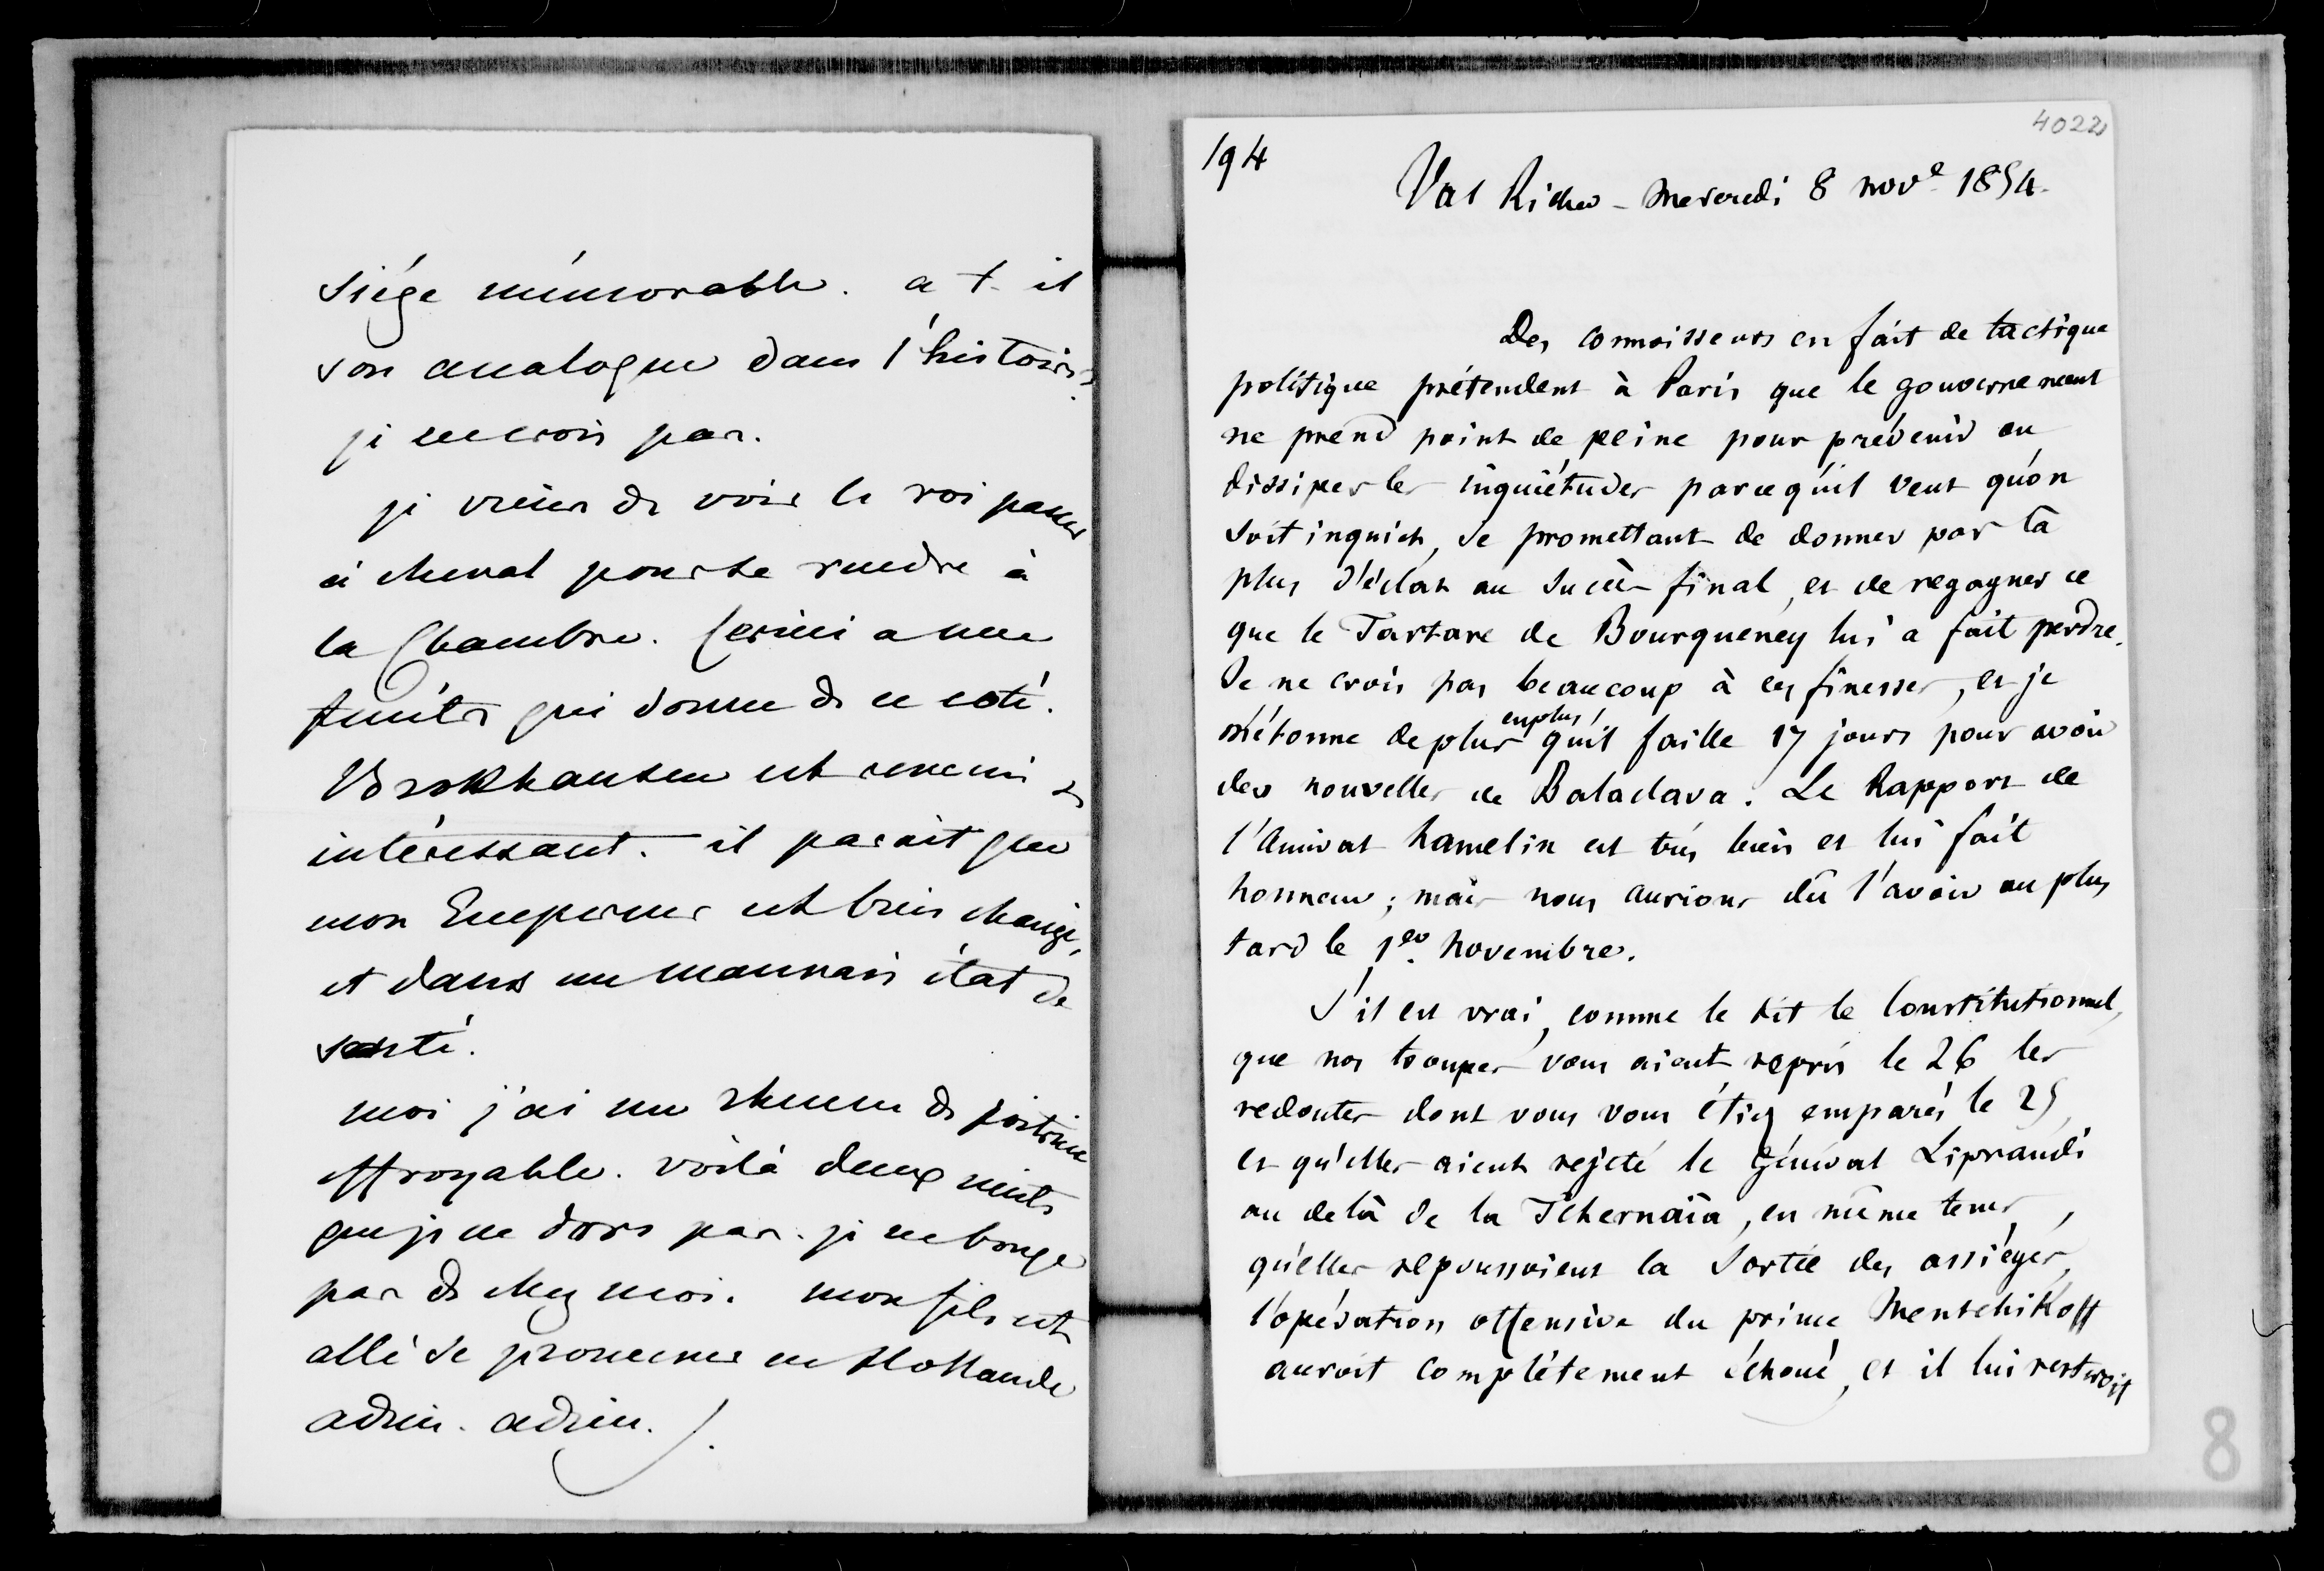 siége mémorable. a t-il
son analogue dans l'histoire?
je ne crois pas.
je viens de voir le roi passer
à cheval pour se rendre à
la Chambre. Cerini a une
fenêtre qui donne de ce coté.
Brokhausen est revenu
intéressant. il parait que
mon Empereur est bien changé,
et dans un mauvais état de
santé.
moi j'ai un rhume de poitrine
effroyable. voilà deux nuits
que je ne dors pas. je ne bouge
pas de chez moi. mon fils est
allé se promener en Hollande
adieu. adieu.
4022
194
Val Richer - Mercredi 8 nov^e 1854.
Des connoisseurs en fait de tactique
politique prétendent à Paris que le gouvernement
ne prend point de peine pour prévenir ou
dissiper les inquiétudes parcequ'il veut qu'on
soit inquiet, se promettant de donner par là
plus d'éclat au succès final, et de regagner ce
que le Tartare de Bourqueney lui a fait perdre.
Je ne crois pas beaucoup à ces finesses, et je
m'étonne de plus en plus qu'il faille 17 jours pour avoir
des nouvelles de Balaclava. Le Rapport de
l'Amiral hamelin est très bien et lui fait
honneur ; mais nous aurions du l'avoir au plus
tard le 1er novembre.
S'il est vrai, comme le dit le Constitutionnel,
que nos troupes vous aient repris le 26 les
redoutes dont vous vous étiez emparés le 25
et qu'elles aient rejeté le Général Liprandi
au delà de la Tchernaïa, en même tems,
qu'elles repoussoient la Sortie des assiégés,
l'opération offensive du prince Mentchikoff
auroit complétement échoué, et il lui resteroit
8